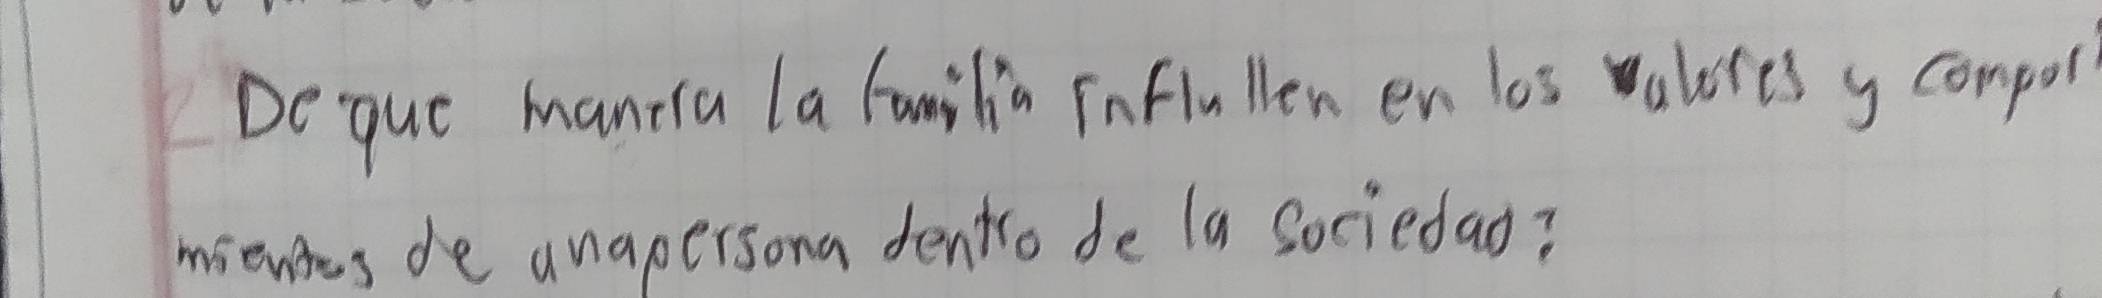 De que manera la familia influllen en los valores y compor
mientos de unapersona dentro de la sociedad?